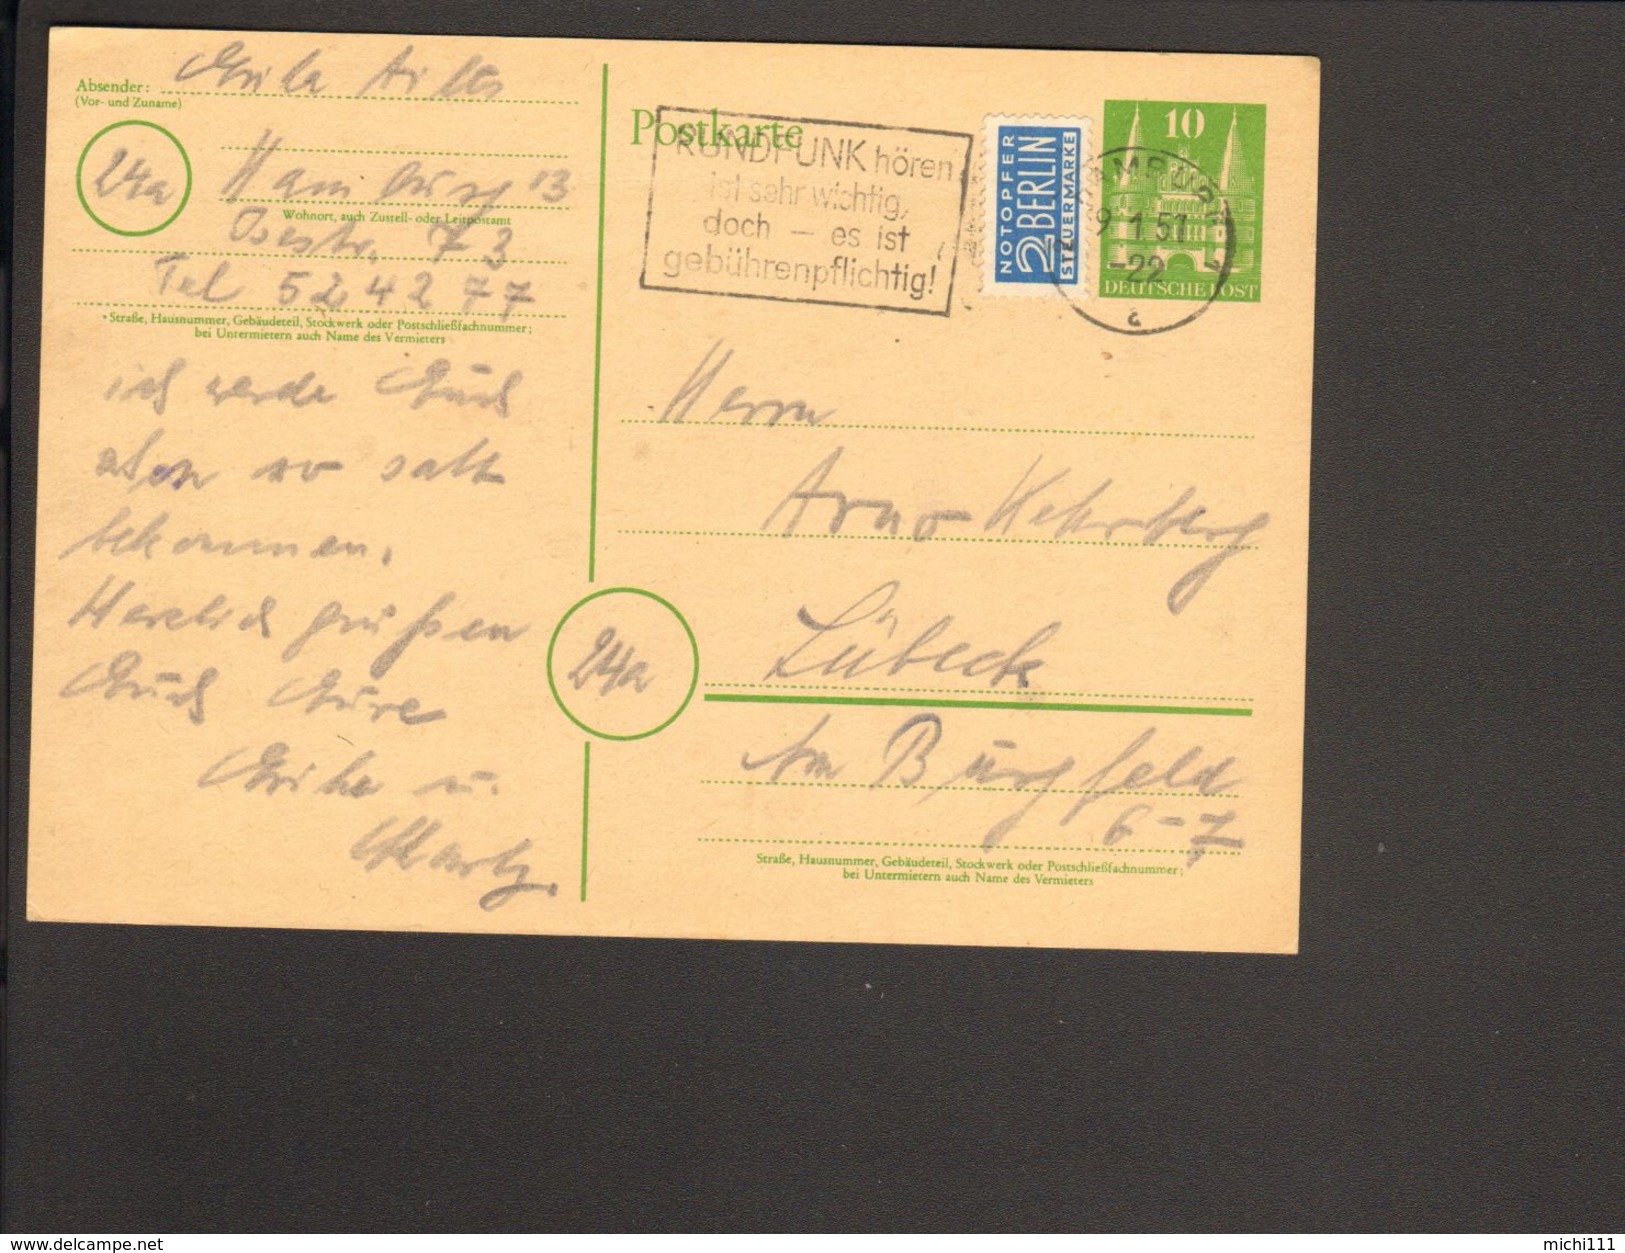 Absender:
(Vor- und Zuname)
24a
Hamburg 13
Wohnort, auch Zustell- oder Leitpostamt
73
Tel 52 42 77
Straße, Hausnummer, Gebäudeteil, Stockwerk oder Postschließfachnummer;
bei Untermietern auch Name des Vermieters
ich werde Euch
eben so satt
bekommen.
Herzlich grüßen
Euch Eure
u.
Postkarte
RUNDFUNK hören
ist sehr wichtig,
doch – es ist
gebührenpflichtig!
NOTOPFER
2 BERLIN
STEUERMARKE
10
HAMBURG
9.1.51
-22
a
DEUTSCHE POST
Herrn
Arno Kehrberg
24a
Lübeck
Am Burgfeld
6-7
Straße, Hausnummer, Gebäudeteil, Stockwerk oder Postschließfachnummer;
bei Untermietern auch Name des Vermieters
www.delcampe.net
michi111